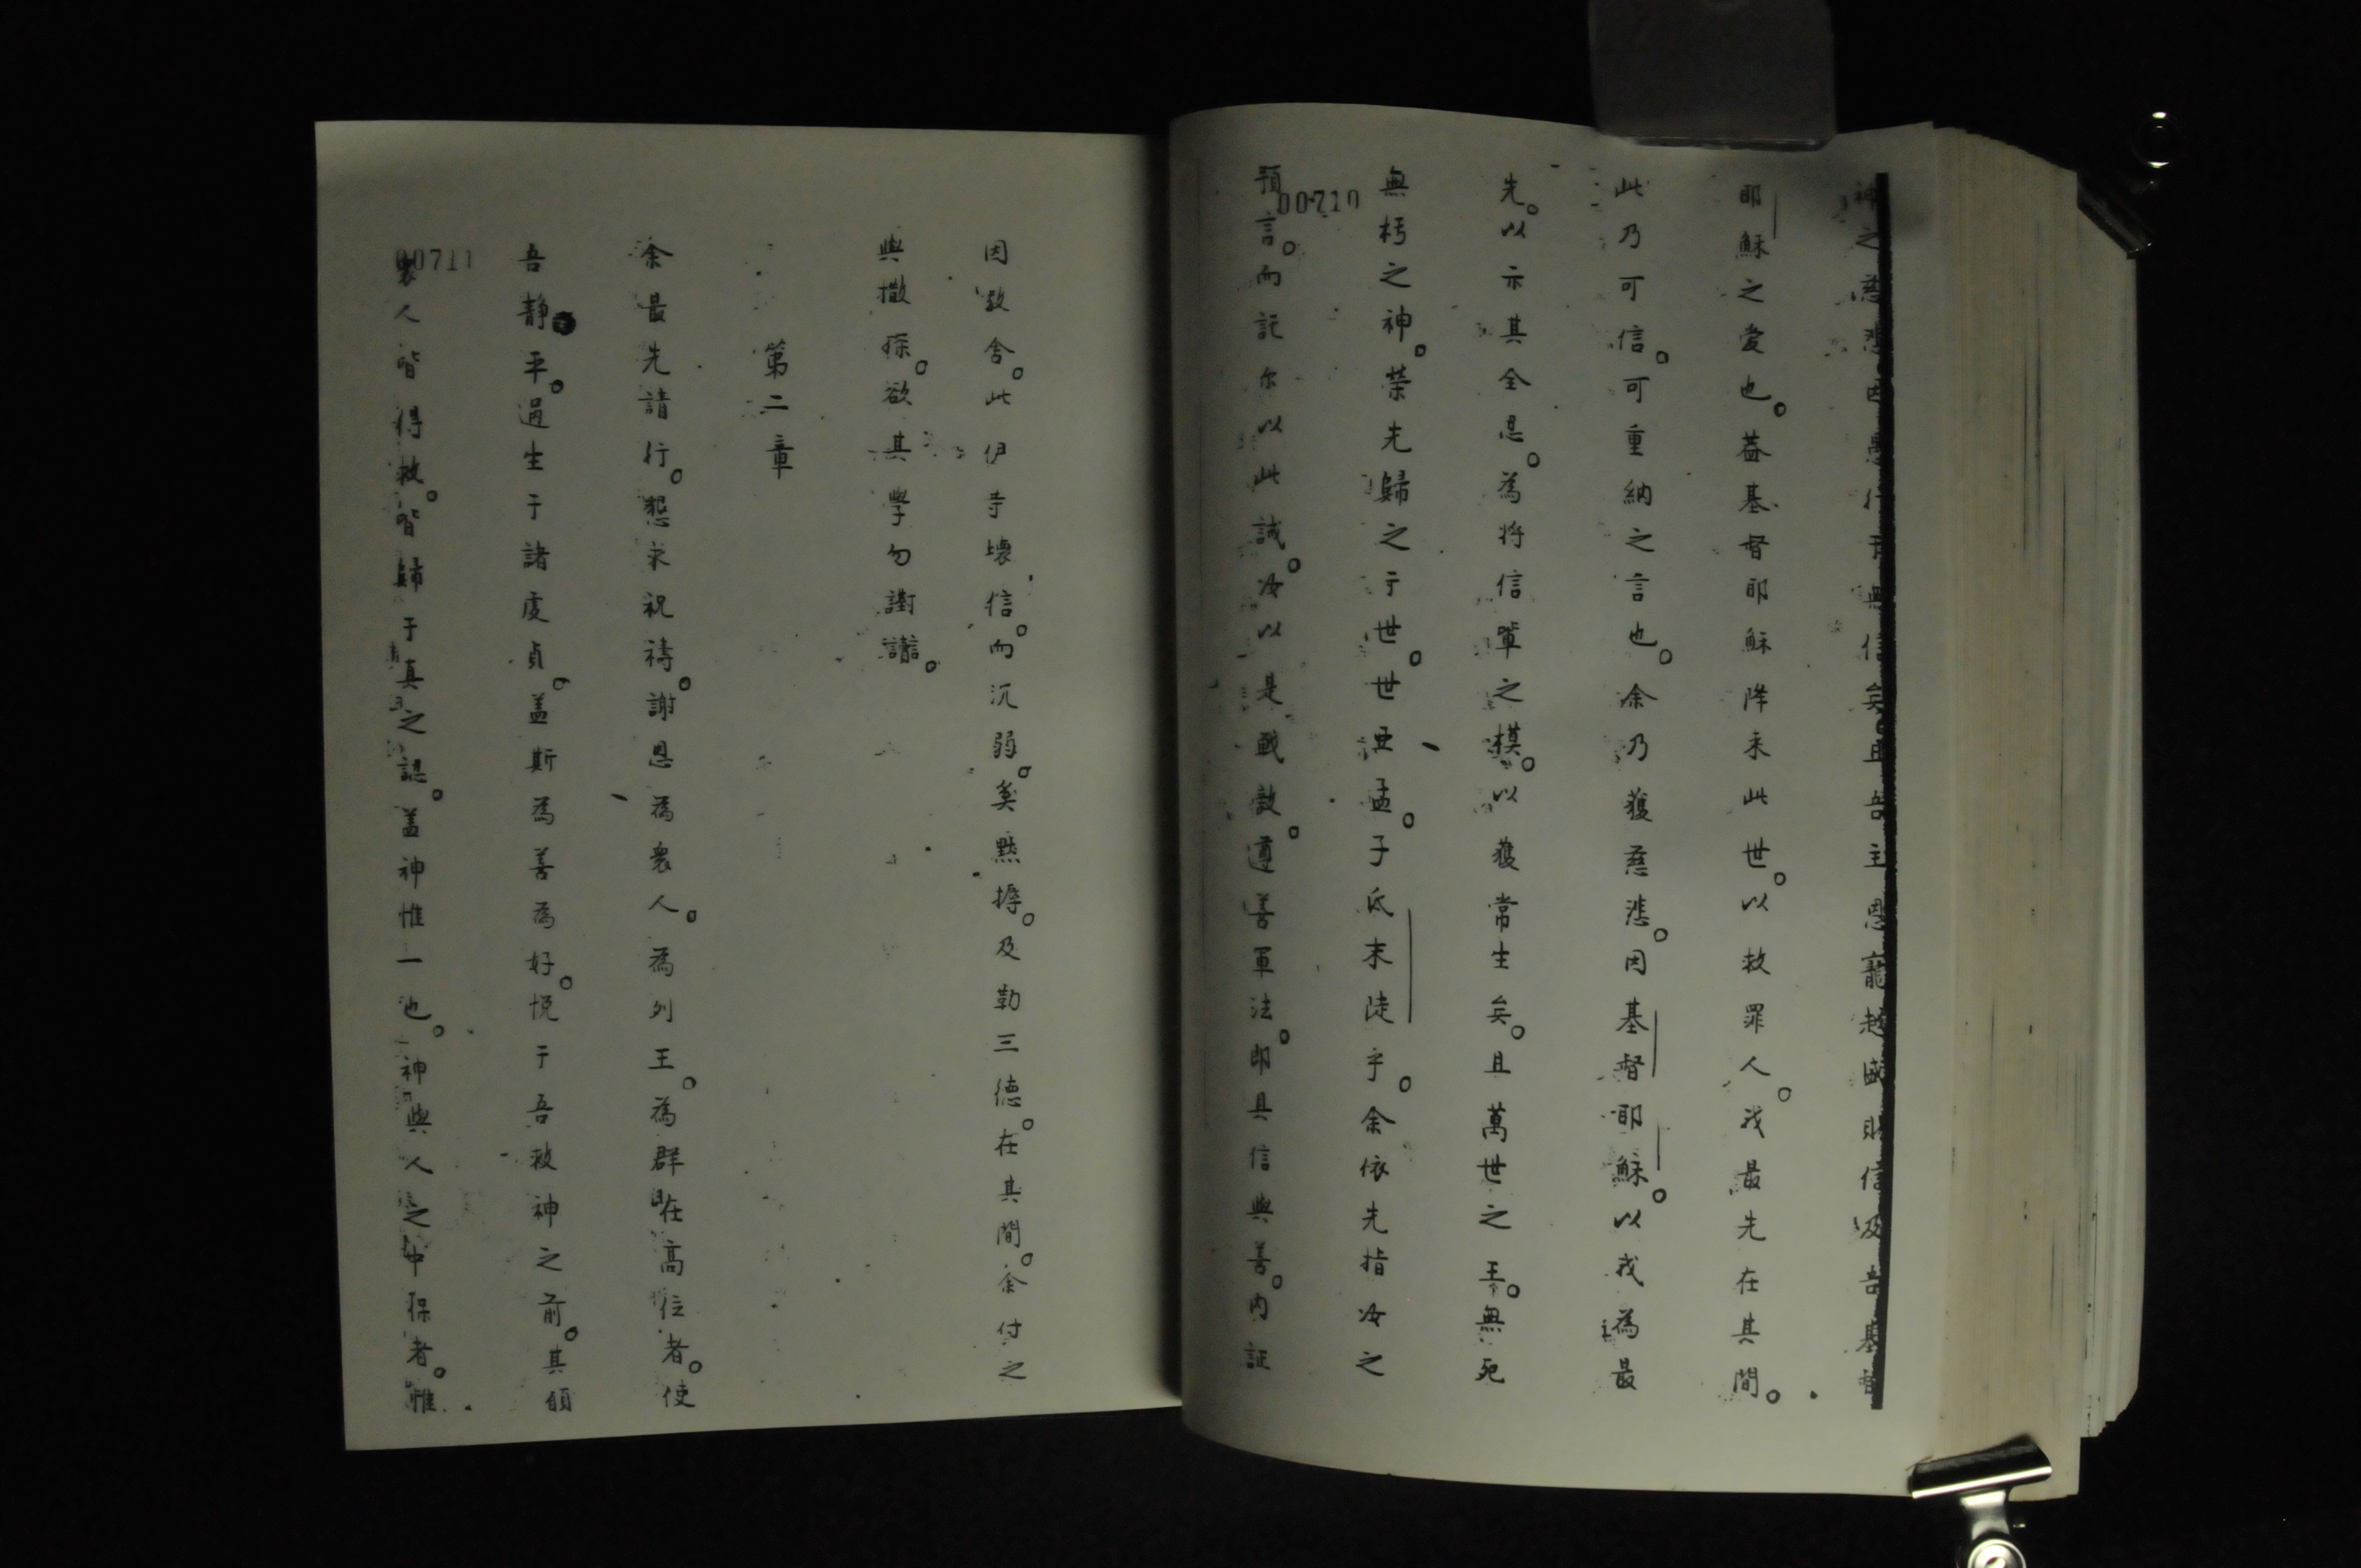 神之慈悲因愚行于無信矣。且吾主恩寵越盛賜信及吾基督
耶穌之愛也。蓋基督耶穌降來此世。以救罪人。我最先在其間。
此乃可信。可重納之言也。余乃獲慈悲。因基督耶穌。以我為最
先。以示其全忍。為將信輩之模。以獲常生矣。且萬世之王。無死
無朽之神。榮先歸之于世。世亞孟。子氐末陡乎。余依先指汝之
預言。而託尔以此誡。汝以是戰敵。遵善軍法。即具信與善。內証
00710
因數舍。此伊寺壞信。而沉弱。奚黙搙。及勒三德。在其間。余付之
與撒探。欲其學勿謝讟。
第二章
余最先請行。懇求祝禱。謝恩為衆人。為列王。為群在高位者。使
吾静平。過生于諸虔貞。盖斯為善為好。悅于吾救神之前。其願
衆人皆得救。皆歸于真之認。盖神惟一也。神與人之中保者。惟
00711